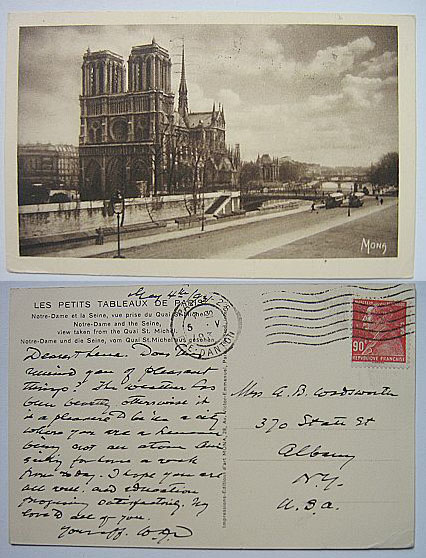 MONA
LES PETITS TABLEAUX DE PARIS
Notre-Dame et la Seine, vue prise du Quai St. Michel
Notre-Dame and the Seine,
view taken from the Quai St. Michel
Notre-Dame und die Seine, vom Quai St. Michel aus gesehen
May 4th
Dearest Lena. Does this
remind you of pleasant
things? The weather has
been beastly, otherwise it
is a pleasure to be in a city
where you are a human
being not an atom. Am
sailing for home a week
from today. I hope you are
all well and education
progressing satisfactorily. My
love to all of you.
Mrs A. B. Wadsworth
370 State St
Albany
N.Y.
U.S.A.
90
REPUBLIQUE FRANÇAISE